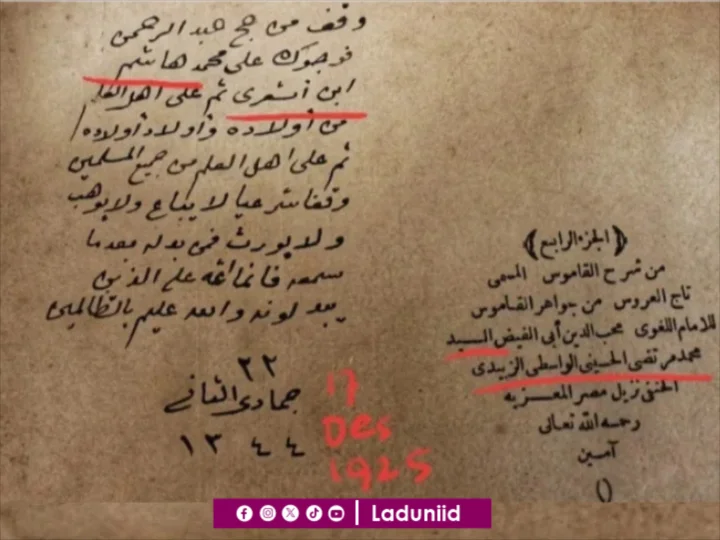 وقف من حج عبد الرحمن
فوجوك على محمد هاشم
ابن أشعرى ثم على اهل العلم
من أولاده وأولاد أولاده
ثم على اهل العلم من جميع المسلمين
وقفا شرعيا لا يباع ولا يوهب
ولا يورث فمن بدله بعد ما
سمعه فانما اثمه على الذين
يبدلونه والله عليم بالظالمين
٢٢
جمادى الثانى
١٣٤٤
17
Des
1925
﴿الجزء الرابع﴾
من شرح القاموس المسمى
تاج العروس من جواهر القاموس
للامام اللغوى محب الدين أبى الفيض السيد
محمد مرتضى الحسينى الواسطى الزبيدى
الحنفى نزيل مصر المعزيه
رحمه الله تعالى
آمين
()
Laduniid